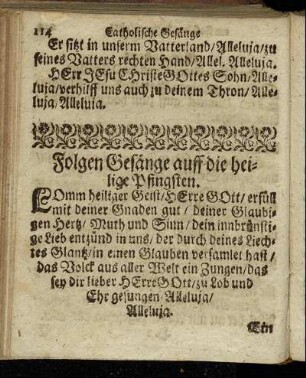 114 Catholische Gesänge
Er sitzt in unserm Vatterland/ Alleluja/ zu
seines Vatters rechten Hand/ Allel. Alleluja.
HErr JEsu CHriste GOttes Sohn/ Alle-
luja/ verhilff uns auch zu deinem Thron/ Alle-
luja/ Alleluja.
Folgen Gesänge auff die hei-
lige Pfingsten.
KOmm heiliger Geist/ HErre GOtt/ erfüll
mit deiner Gnaden gut/ deiner Glaubi-
gen Hertz/ Muth und Sinn/ dein innbrünsti-
ge Lieb entzünd in uns/ der durch deines Liech-
tes Glantz/ in einen Glauben versamlet hast/
das Volck aus aller Welt ein Zungen/ das
sey dir lieber HErre GOtt/ zu Lob und
Ehr gesungen/ Alleluja/
Alleluja.
Ein